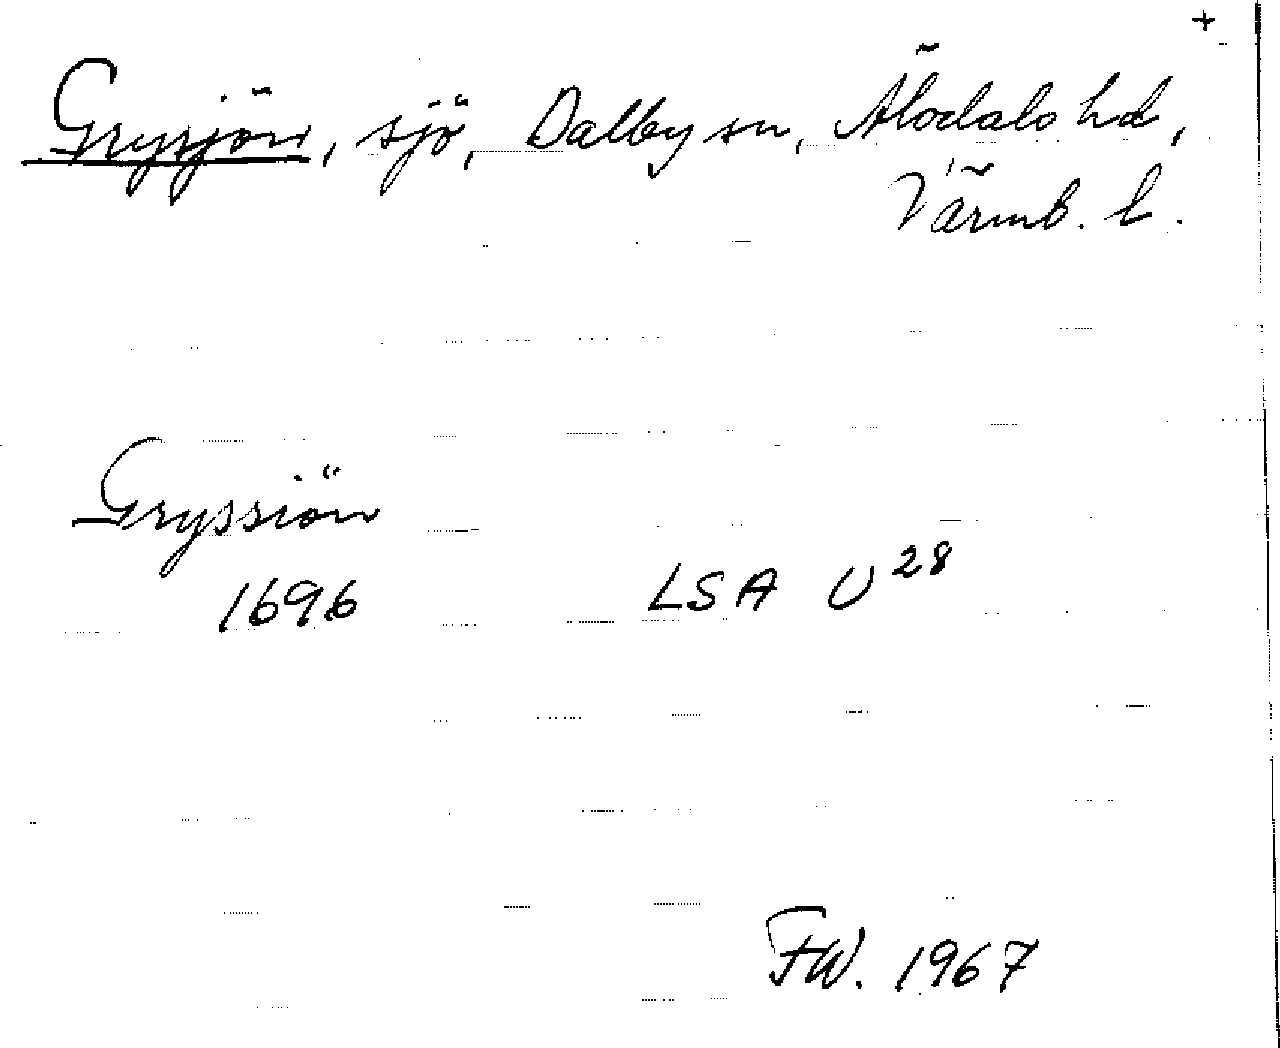 +
Grysjön, sjö, Dalby sn, Älvdals hd,
Värml. l.
Gryssiön
1696 LSA U28
FW. 1967